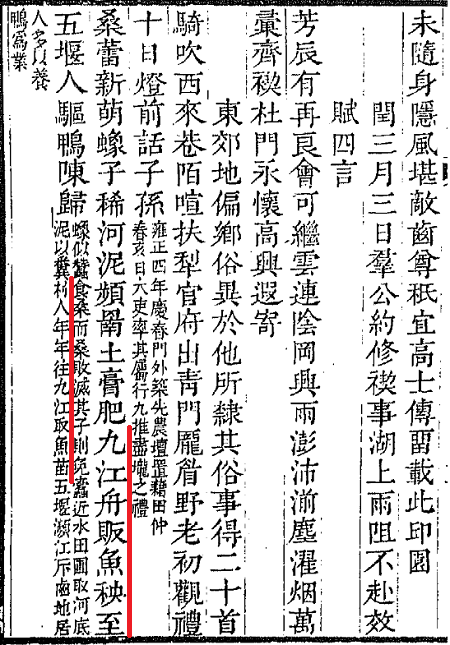 未隨身隱風堪敵齒尊秖宜高士傳畱載此印圖
閏三月三日羣公約修禊事湖上雨阻不赴效
賦四言
芳辰有再良會可繼雲連陰岡興雨澎沛湔塵濯烟萬
彙齊禊杜門永懷高興遐寄
東郊地偏鄉俗異於他所隸其俗事得二十首
騎吹西來巷陌喧扶犁官府出青門龐眉野老初觀禮
十日燈前話子孫
雍正四年慶春門外築先農壇置藉田仲
春亥日大吏率其屬行九推盡壠之禮
桑蕾新萌蟓子稀河泥頻罱土膏肥九江舟販魚秧至
五堰人驅鴨陳歸
蟓似蠶食桑而桑敗滅其子則免蠹近水田圃取河底
泥以糞村人年年往九江取魚苗五堰瀕江斥鹵地居
人多以養
鴨為業